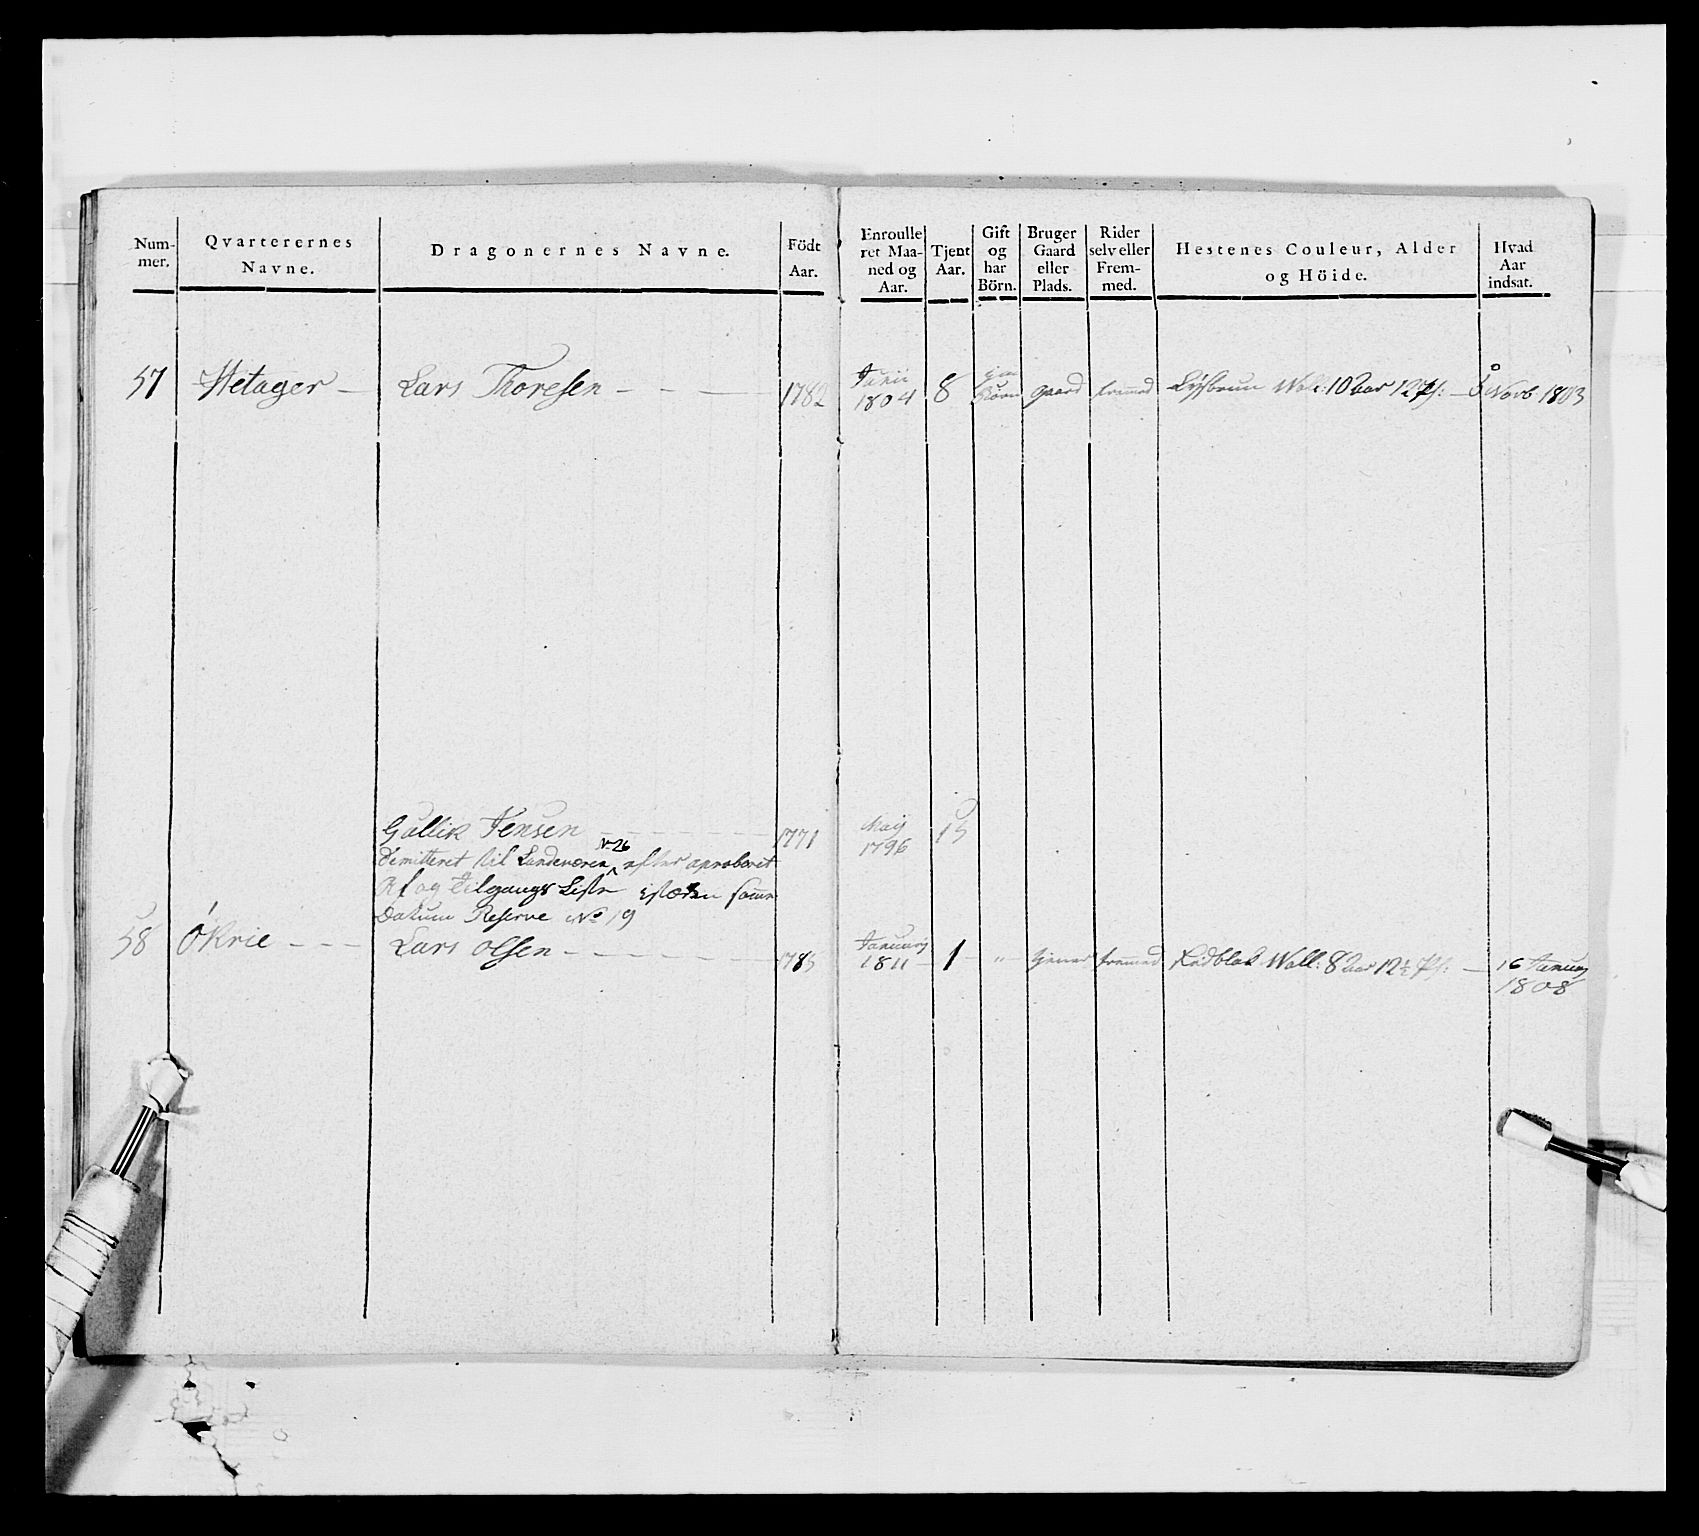 Num-
mer.
Qvarterernes
Navne.
Dragonernes Navne.
Födt
Aar.
Enroulle
ret Maa-
ned og
Aar.
Tjent
Aar.
Gift
og
har
Börn.
Bruger
Gaard
eller
Plads.
Rider
selv eller
Frem-
med.
Hestenes Couleur, Alder
og Höide.
Hvad
Aar
indsat.
57 Hetager — Lars Thoresen — — — — 1782 Junii
1804 8 Börn gaard fremed Lysbrun Wall: 10 Aar 12 — Novb 1803
Gullik Jensen — — — 1771 Maij
1796 15
No 26
Demitteret til Landeværn efter aproberet
Af og Tilgangs Liste istæden samme
Datum Reserve No 19
58 Økrie — — — Lars Olsen — — — — 1785 Januarij
1811 — 1 — „ — tjener fremmed Rødblak Wall: 8 Aar 12½ — 16 Januarj
1808